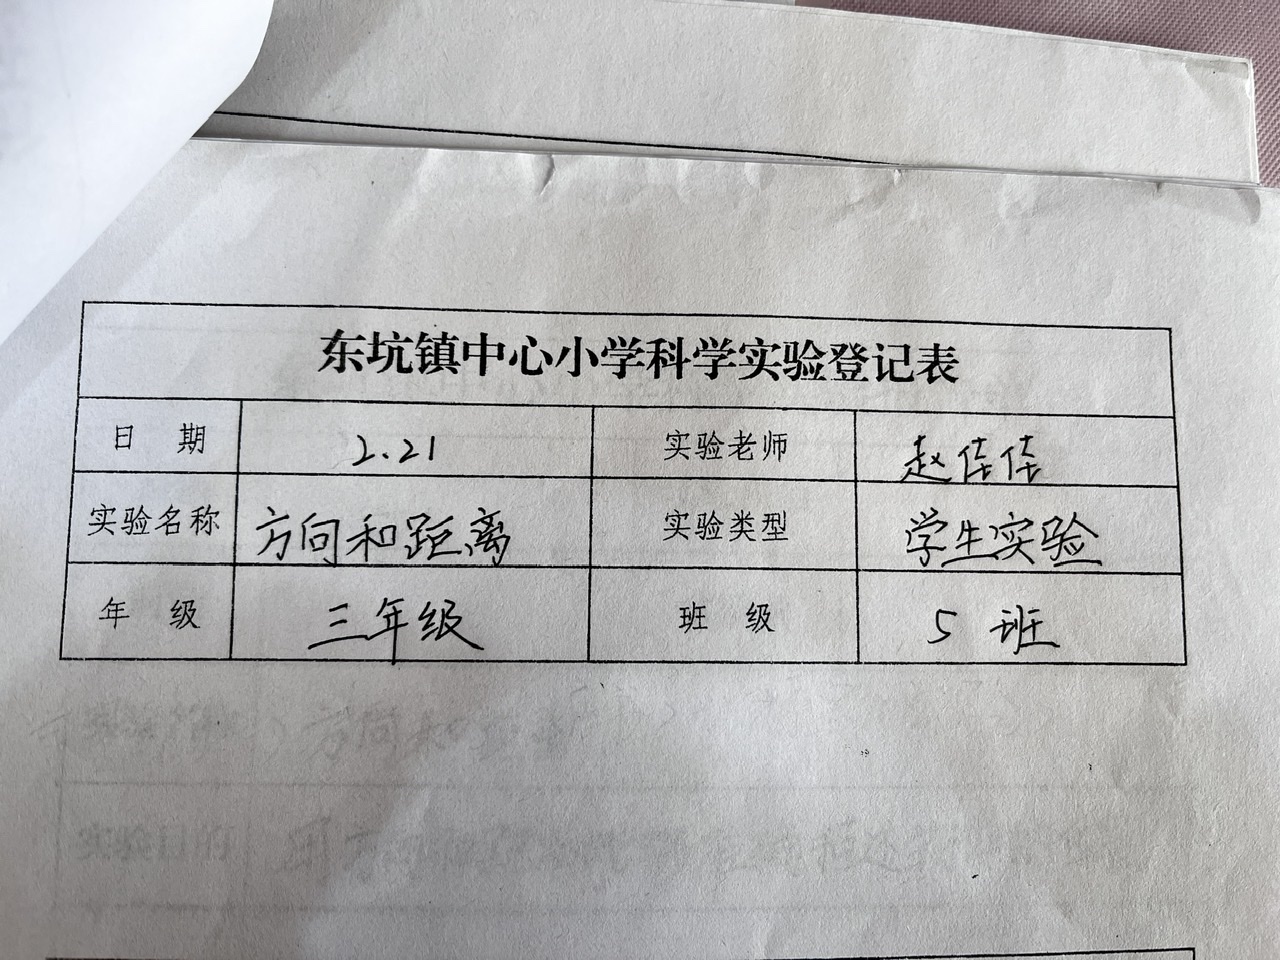 东坑镇中心小学科学实验登记表
日 期 2.21 实验老师 赵佳佳
实验名称 方向和距离 实验类型 学生实验
年 级 三年级 班 级 5 班